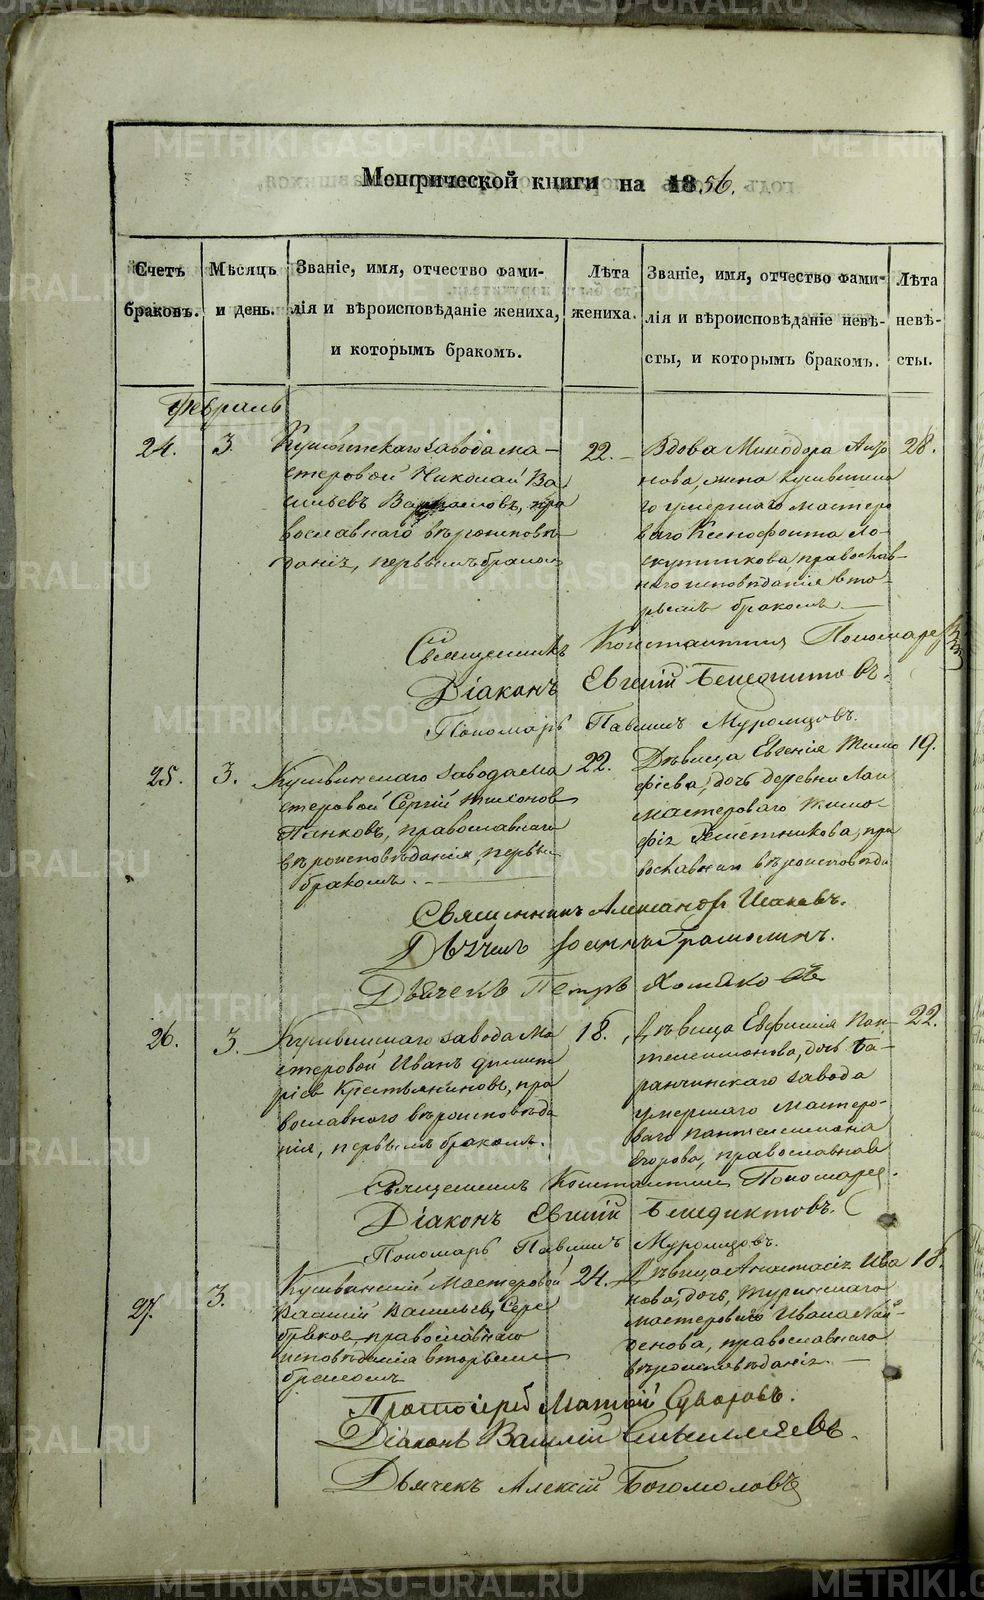 METRIKI.GASO-URAL.RU
Метрической книги на 1856.
Счетъ браковъ.
Мѣсяцъ и день.
Званіе, имя, отчество фами-
лія и вѣроисповѣданіе жениха,
и которымъ бракомъ.
Лѣта жениха.
Званіе, имя, отчество фами-
лія и вѣроисповѣданіе невѣ-
сты, и которымъ бракомъ.
Лѣта невѣ-
сты.
Февраль
24. 3.
Кушвинскаго завода ма-
стеровой Николай Ва
сильевъ пра
вославнаго вѣроисповѣ-
данія, первымъ бракомъ
22.
Вдова Минодора
нова, жена Кушвинска
го умершаго мастеро
ваго Ксенофонта Ло-
скутникова, православ-
наго исповѣданія вто-
рымъ бракомъ.
28.
Священникъ Константинъ Пономаревъ
Діаконъ Евгеній Бенедиктовъ.
Пономарь Павлинъ Муромцовъ.
25. 3.
Кушвинскаго завода ма
стеровой Сергій Тихонов
Панковъ, православнаго
вѣроисповѣданія, первы
бракомъ.
22.
Дѣвица Евгенія Тимо
фіева, дочь деревни Лаи
мастероваго Тимо-
фія пра
вославнаго вѣроисповѣда
19.
Священникъ Александръ
Дьячекъ Петръ Хомяковъ
26. 3.
Кушвинскаго завода Ма
стеровой Иванъ Димит
ріев Крестьяниновъ, пра
вославнаго вѣроисповѣда
нія, первымъ бракомъ.
18.
Дѣвица Евфимія Пан-
телеимонова, дочь Ба-
ранчинскаго завода
умершаго Мастеро-
ваго Пантелеимона
Егорова, православнаго
22.
Священникъ Константинъ Пономарев.
Діаконъ Евгеній Бенедиктовъ.
Пономарь Павлинъ Муромцовъ.
27. 3.
Кушвинскій Мастеровой
Василій Васильев Сере
бряков, православнаго
исповѣданія вторымъ
бракомъ
24.
Дѣвица Анастасія Ива
нова, дочь, Туринскаго
мастероваго Ивана Най-
денова, православнаго
вѣроисповѣданія.
18.
Протоіерей Матѳій Суворовъ.
Діаконъ Василій
Дьячекъ Алексій Богомоловъ